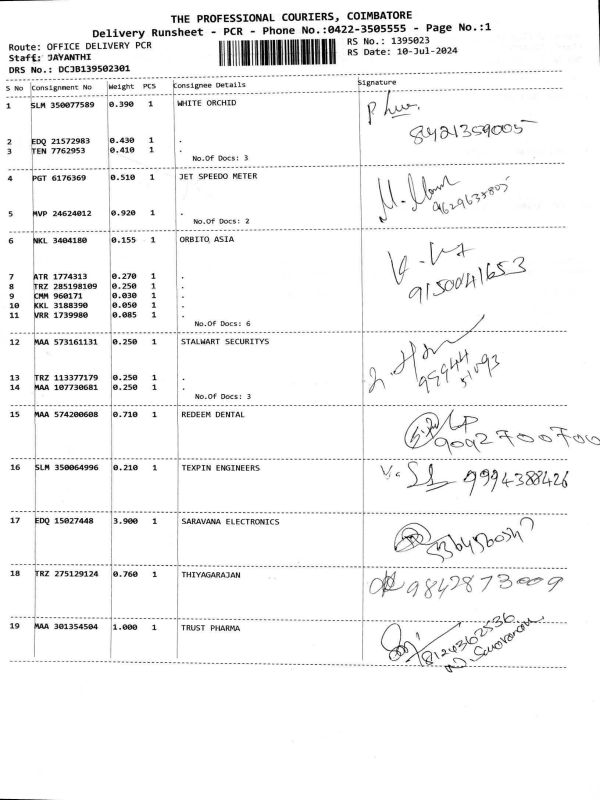 THE PROFESSIONAL COURIERS, COIMBATORE
Delivery Runsheet - PCR - Phone No.:0422-3505555 - Page No.:1
Route: OFFICE DELIVERY PCR RS No.: 1395023
Staff: JAYANTHI RS Date: 10-Jul-2024
DRS No.: DCJB139502301
S No Consignment No Weight PCS Consignee Details Signature
1 SLM 350077589 0.390 1 WHITE ORCHID
8421359005
2 EDQ 21572983 0.430 1 .
3 TEN 7762953 0.410 1 .
No.Of Docs: 3
4 PGT 6176369 0.510 1 JET SPEEDO METER
9629635805
5 MVP 24624012 0.920 1 .
No.Of Docs: 2
6 NKL 3404180 0.155 1 ORBITO ASIA
9150041653
7 ATR 1774313 0.270 1 .
8 TRZ 285198109 0.250 1 .
9 CMM 960171 0.030 1 .
10 KKL 3188390 0.050 1 .
11 VRR 1739980 0.085 1 .
No.Of Docs: 6
12 MAA 573161131 0.250 1 STALWART SECURITYS
99944
51093
13 TRZ 113377179 0.250 1 .
14 MAA 107730681 0.250 1 .
No.Of Docs: 3
15 MAA 574200608 0.710 1 REDEEM DENTAL
9092700700
16 SLM 350064996 0.210 1 TEXPIN ENGINEERS
9994388426
17 EDQ 15027448 3.900 1 SARAVANA ELECTRONICS
18 TRZ 275129124 0.760 1 THIYAGARAJAN
9842873009
19 MAA 301354504 1.000 1 TRUST PHARMA
8124362536